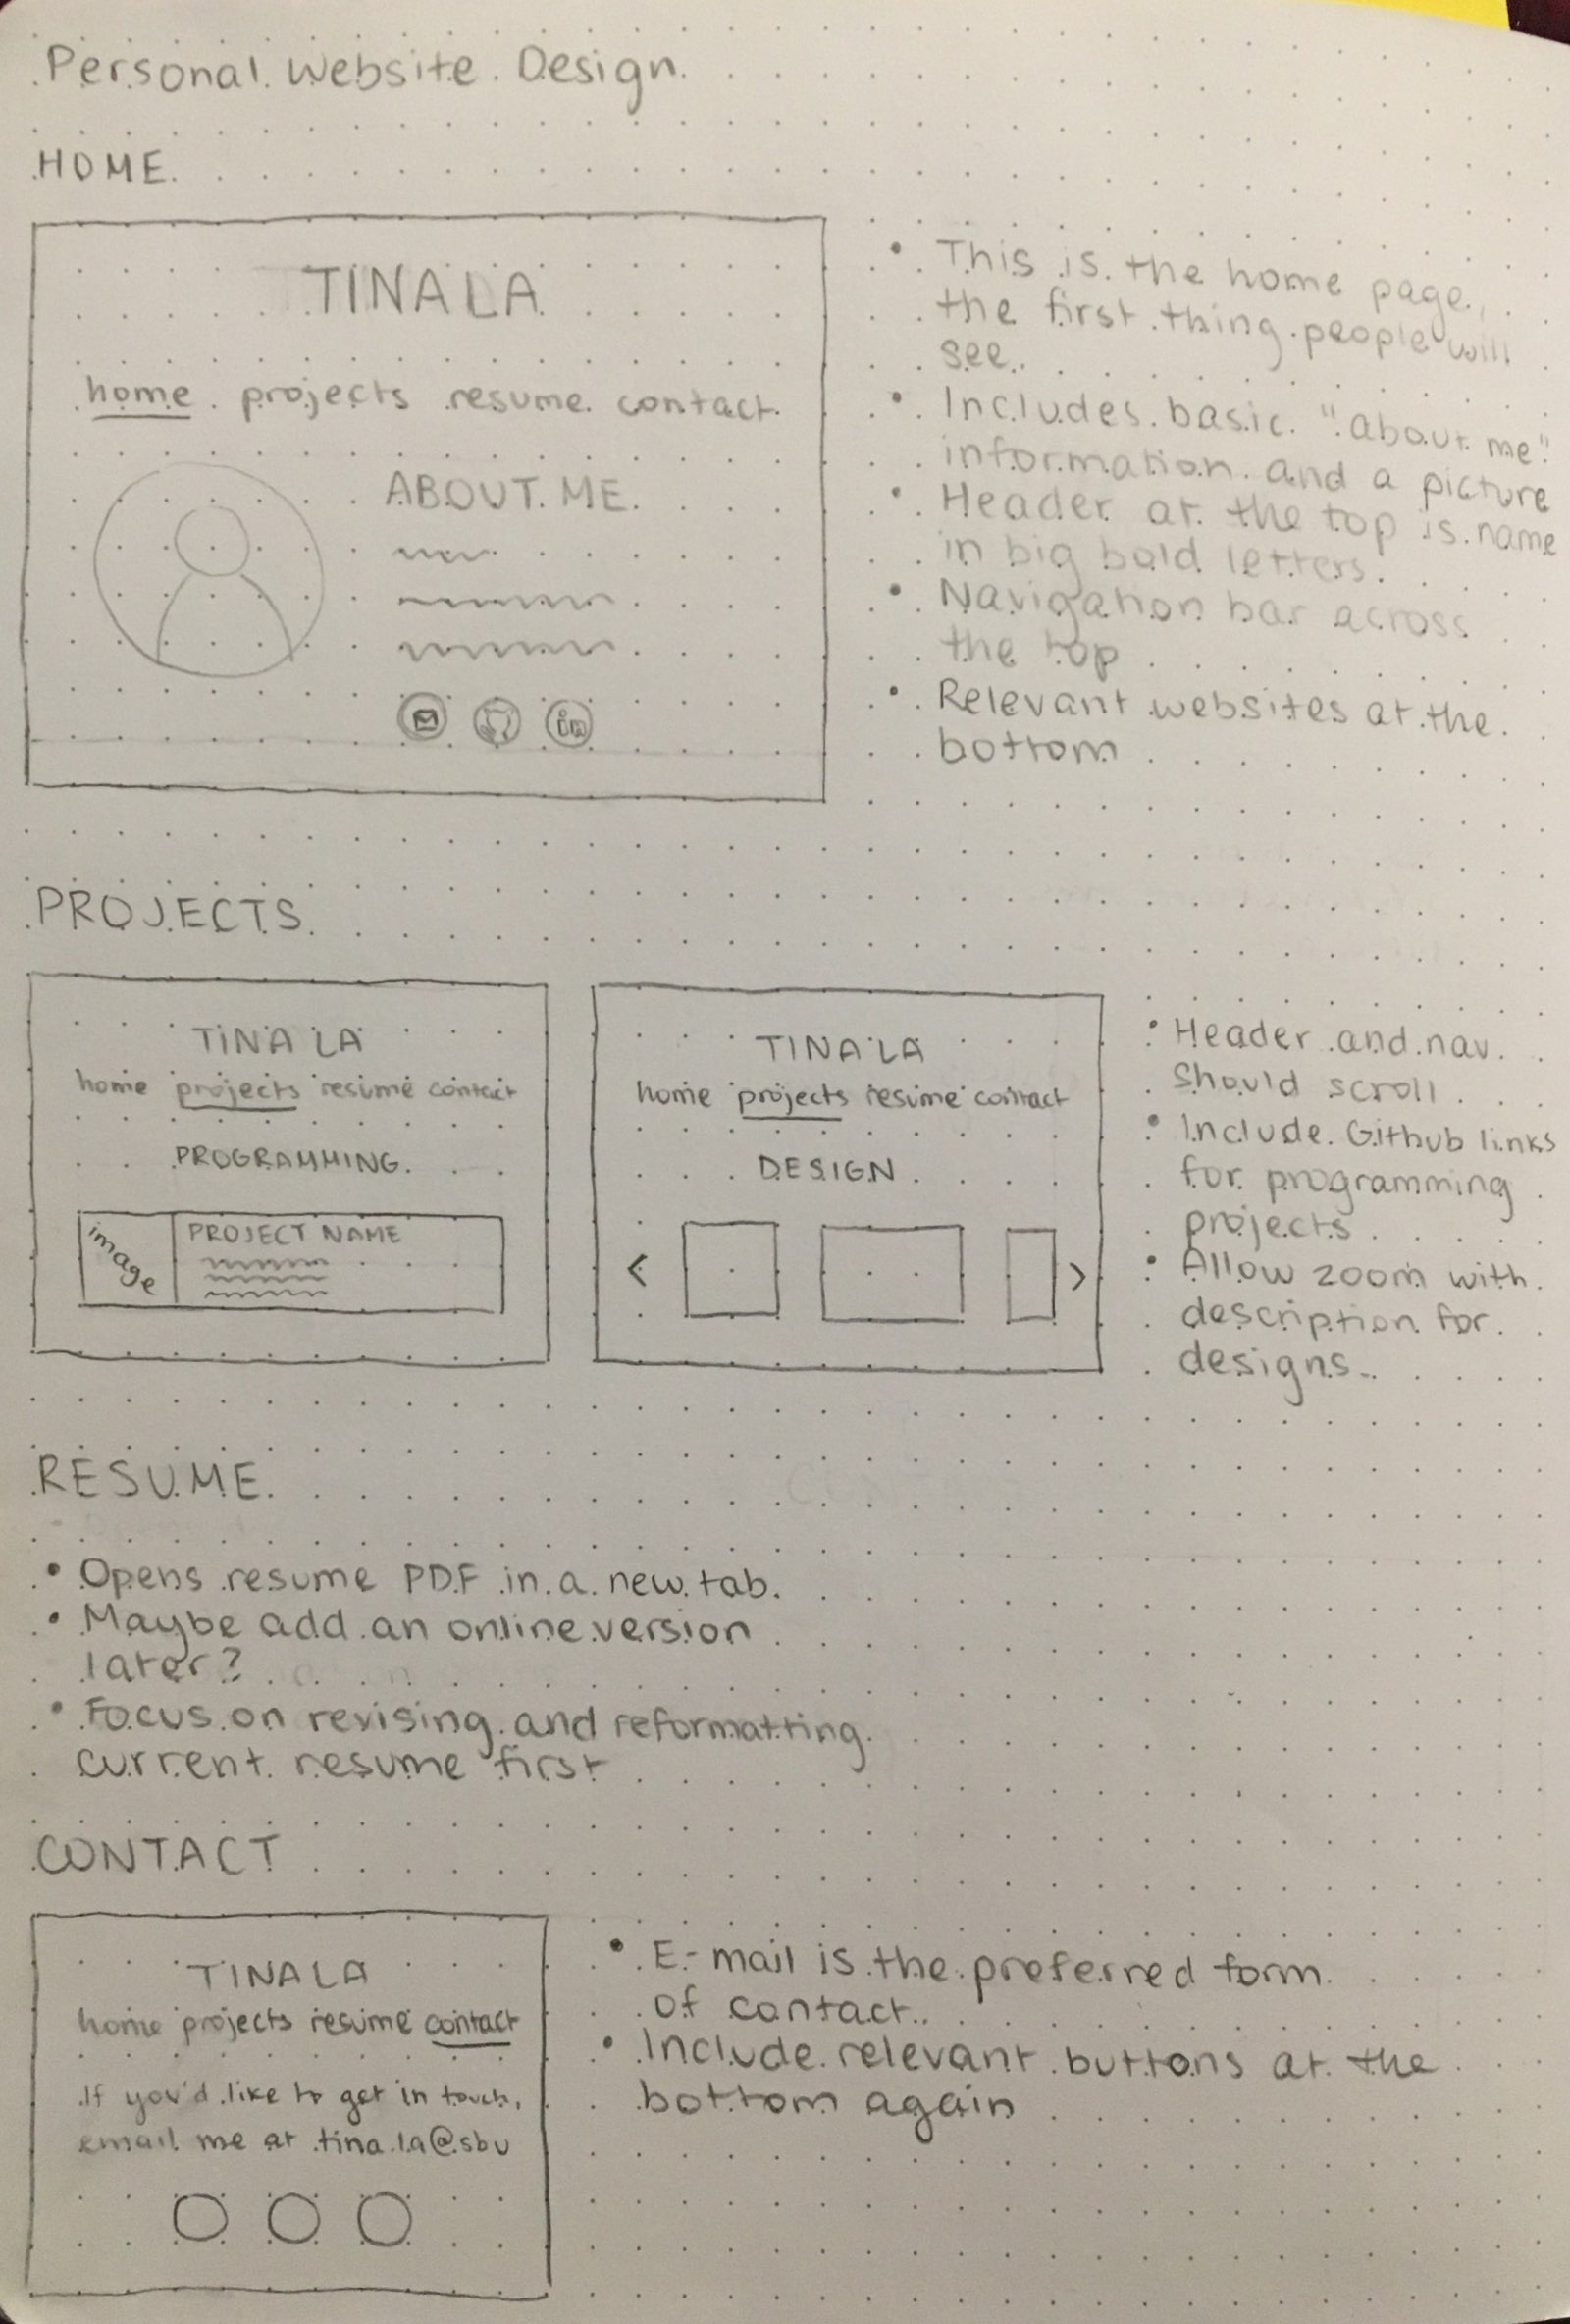 Personal Website Design
HOME
TINA LA
home projects resume contact
ABOUT ME
in
• This is the home page,
the first thing people will
see.
• Includes basic "about me"
information and a picture
• Header at the top is name
in big bold letters.
• Navigation bar across
the top
• Relevant websites at the
bottom
PROJECTS
TINA LA
home projects resume contact
PROGRAMMING
image
PROJECT NAME
TINA LA
home projects resume contact
DESIGN
< >
• Header and nav
should scroll
• Include Github links
for programming
projects
• Allow zoom with
description for
designs.
RESUME
• Opens resume PDF in a new tab.
• Maybe add an online version
later?
• Focus on revising and reformatting
current resume first
CONTACT
TINA LA
home projects resume contact
If you'd like to get in touch,
email me at tina.la@sbu
• E-mail is the preferred form
of contact.
• Include relevant buttons at the
bottom again